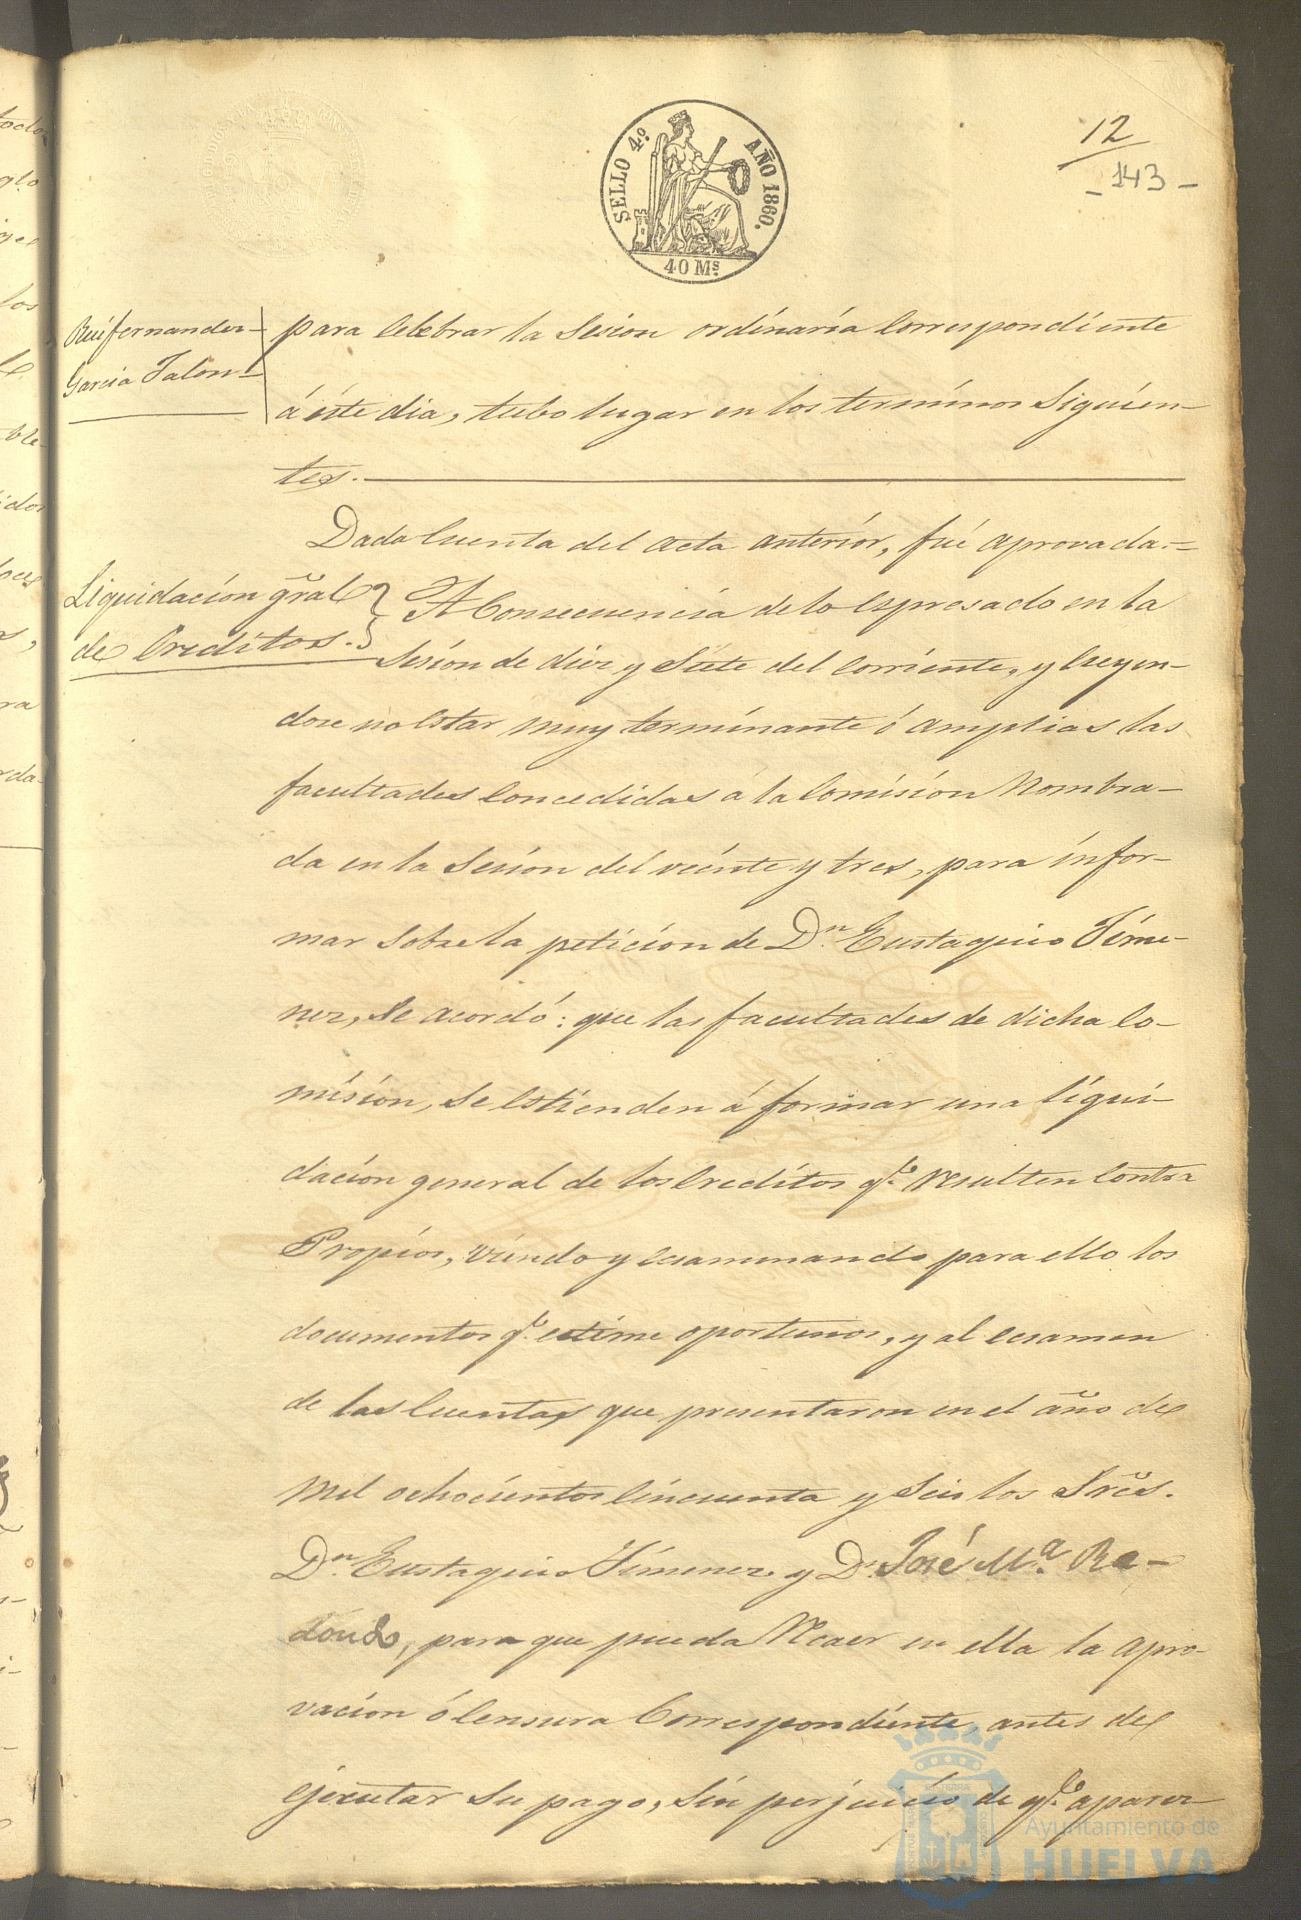 SELLO 4º AÑO 1860.
40 Ms.
12
- 143 -
Ruifernandez
Garcia Jalon
para celebrar la sesion ordinaria correspondiente
á éste dia, tubo lugar en los terminos siguien-
tes.
Dada cuenta del acta anterior, fué aprovada.=
Liquidación gral
de Creditos.
A consecuencia de lo espresado en la
sesion de diez y siete del corriente, y creyen-
dose no estar muy terminante ó amplias las
facultades concedidas á la Comision nombra-
da en la sesion del veinte y tres, para infor-
mar sobre la peticion de Dn. Eustaquio Jime-
nez, se acordó: que las facultades de dicha co-
mision, se estienden á formar una liqui-
dacion general de los creditos qe. resulten contra
Propios, viendo y ecsaminando para ello los
documentos qe. estime oportunos, y al ecsamen
de las cuentas que presentaron en el año de
mil ochocientos cincuenta y seis los Sres.
Dn. Eustaquio Jimenez y Dn. José Ma. Re-
dondo, para que pueda recaer en ella la apro-
vacion ó censura correspondiente, antes de
ejecutar su pago, sin perjuicio de qe. aparez-
Ayuntamiento de
HUELVA